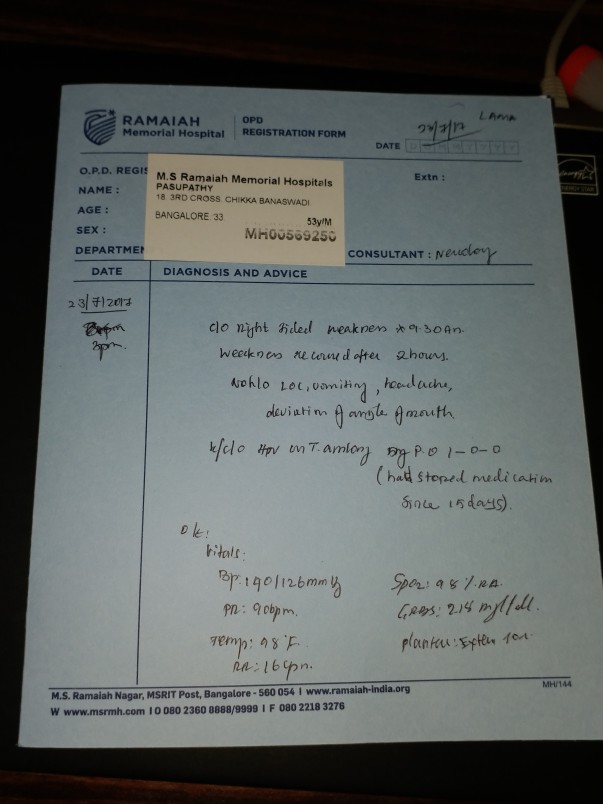 RAMAIAH
Memorial Hospital
OPD
REGISTRATION FORM
LAMA
DATE
O.P.D. REGIS
Extn :
NAME :
AGE :
SEX :
DEPARTMEN
M.S Ramaiah Memorial Hospitals
PASUPATHY
18 3RD CROSS, CHIKKA BANASWADI
BANGALORE 33
53y/M
MH00569250
CONSULTANT :
DATE
DIAGNOSIS AND ADVICE
23/7/2017
3pm.
c/o right sided weakness 9.30Am.
Weekness recoured after 2 hours.
No h/o LOC, vomiting, headache,
deviation of angle of mouth
k/c/o on T. amlong 5mg P.O 1-0-0
(had stoped medication
since 15 days).
O/E:
Vitals:
Bp: 190/126mmHg
Spo2: 98 % RA
PR: 90bpm.
GRBS: 218 mg/dl.
Temp: 98°F
RR: 16cpm.
M.S. Ramaiah Nagar, MSRIT Post, Bangalore - 560 054 I www.ramaiah-india.org
MH/144
W www.msrmh.com I O 080 2360 8888/9999 I F 080 2218 3276